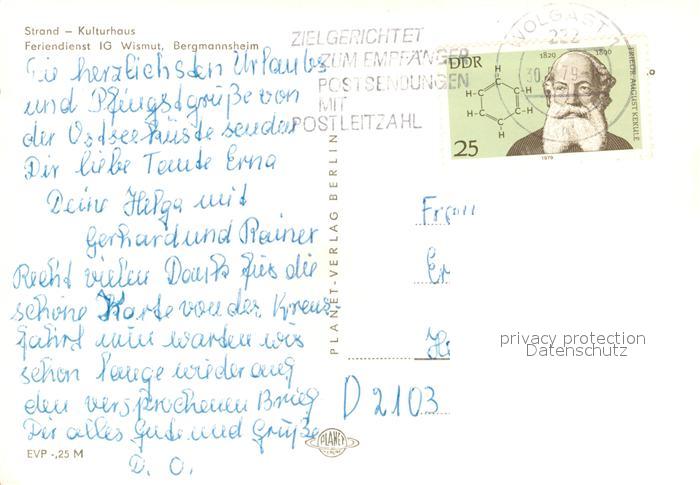 Strand – Kulturhaus
Feriendienst IG Wismut, Bergmannsheim
Die herzlichsten Urlaubs
und Pfingstgrüße von
der Ostseeküste sendet
Dir liebe Tante Erna
Deine Helga mit
Gerhard und Rainer
Recht vielen Dank für die
schöne Karte von der Kreuz
fahrt nun warten wir
schon lange wieder auf
den versprochenen Brief
Dir alles Gute und Grüße
D. O.
EVP -,25 M
PLANET-VERLAG BERLIN
PLANET
ZIELGERICHTET
ZUM EMPFÄNGER
POSTSENDUNGEN
MIT
POSTLEITZAHL
WOLGAST
222
30. 79-
DDR
1829 1896
H
H H
H H
H
FRIEDR. AUGUST KEKULÉ
25
1979
Frau
Er
Hi
D 2103
privacy protection
Datenschutz